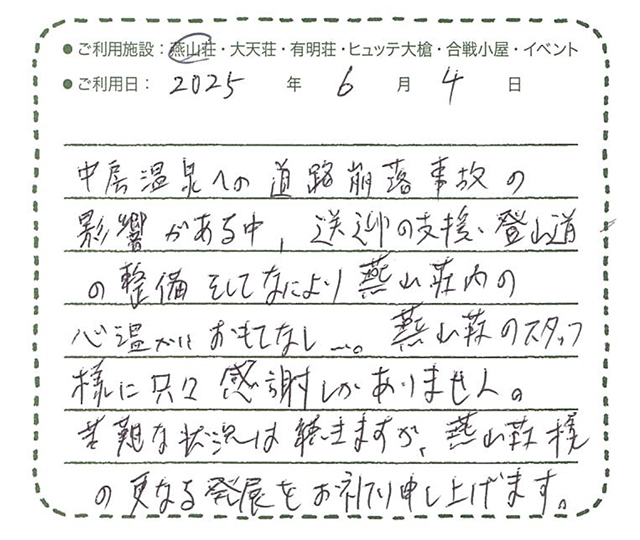 ●ご利用施設：燕山荘・大天荘・有明荘・ヒュッテ大槍・合戦小屋・イベント
●ご利用日： 2025 年 6 月 4 日
中房温泉への道路崩落事故の
影響がある中、送迎の支援、登山道
の整備 そしてなにより 燕山荘内の
心温かい おもてなし…。燕山荘のスタッフ
様に只々 感謝しかありません。
苦難な状況は続きますが、燕山荘様
の更なる発展をお祈り申し上げます。